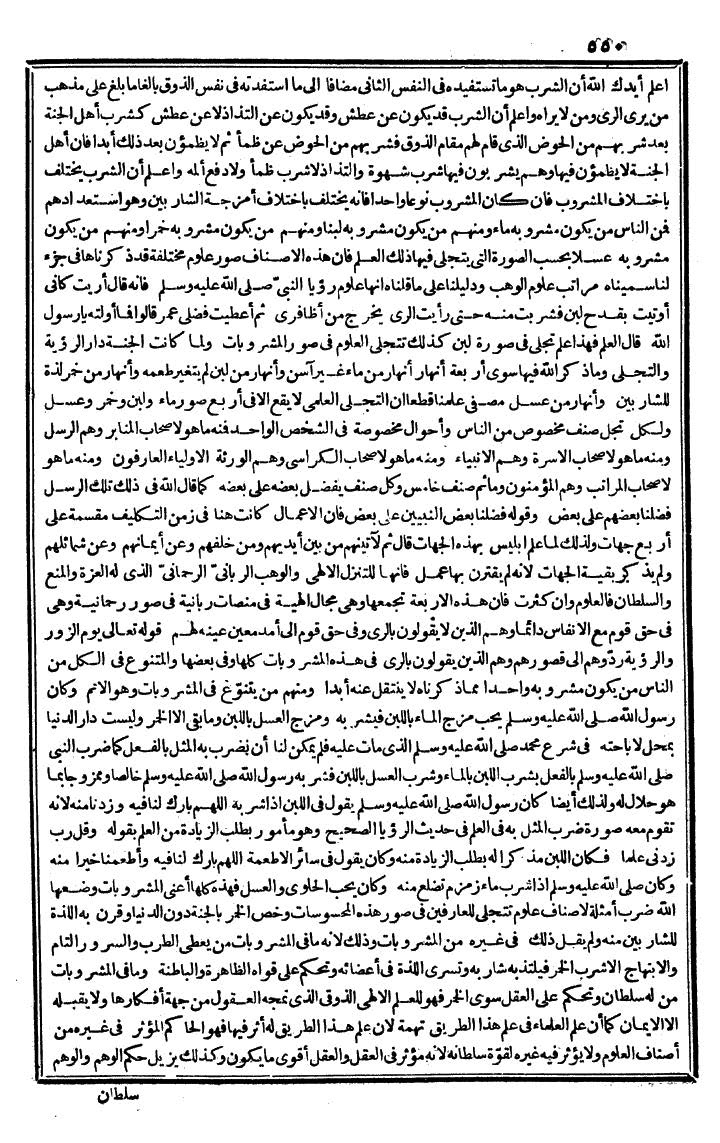 ٥٥٠
اعلم أيدك الله أن الشرب هو ما تستفيده فى النفس الثانى مضافا الى ما استفدته فى نفس الذوق بالغا ما بلغ على مذهب
من يرى الرى ومن لا يراه واعلم أن الشرب قد يكون عن عطش وقد يكون عن التذاذ لا عن عطش كشرب أهل الجنة
بعد شربهم من الحوض الذى قام لهم مقام الذوق فشربهم من الحوض عن ظمأ ثم لا يظمؤن بعد ذلك أبدا فان أهل
الجنة لا يظمؤن فيها وهم يشربون فيها شرب شهوة والتذاذ لا شرب ظمأ ولا دفع ألمه واعلم أن الشرب يختلف
باختلاف المشروب فان كان المشروب نوعا واحدا فانه يختلف باختلاف أمزجة الشاربين وهو استعدادهم
فمن الناس من يكون مشروبه ماء ومنهم من يكون مشروبه لبنا ومنهم من يكون مشروبه خمرا ومنهم من يكون
مشروبه عسلا بحسب الصورة التى يتجلى فيها ذلك العلم فان هذه الاصناف صور علوم مختلفة قد ذكرناها فى جزء
لنا سميناه مراتب علوم الوهب ودليلنا على ما قلناه انها علوم رؤيا النبىّ صلى الله عليه وسلم فانه قال أريت كانى
أوتيت بقدح لبن فشربت منه حتى رأيت الرى يخرج من أظافرى ثم أعطيت فضلى عمر قالوا فما أولته يا رسول
الله قال العلم فهذا علم تجلى فى صورة لبن كذلك تتجلى العلوم فى صور المشروبات ولما كانت الجنة دار الرؤية
والتجلى وما ذكر الله فيها سوى أربعة أنهار أنهار من ماء غير آسن وأنهار من لبن لم يتغير طعمه وأنهار من خمر لذة
للشاربين وأنهار من عسل مصفى علمنا قطعا ان التجلى العلمى لا يقع الا فى أربع صور ماء ولبن وخمر وعسل
ولكل تجل صنف مخصوص من الناس وأحوال مخصوصة فى الشخص الواحد فمنه ما هو لاصحاب المنابر وهم الرسل
ومنه ما هو لاصحاب الاسرة وهم الانبياء ومنه ما هو لاصحاب الكراسى وهم الورثة الاولياء العارفون ومنه ما هو
لاصحاب المراتب وهم المؤمنون وما ثم صنف خامس وكل صنف يفضل بعضه على بعضه كما قال الله فى ذلك تلك الرسل
فضلنا بعضهم على بعض وقوله فضلنا بعض النبيين على بعض فان الاعمال كانت هنا فى زمن التكليف مقسمة على
أربع جهات ولذلك لما علم ابليس بهذه الجهات قال ثم لآتينهم من بين أيديهم ومن خلفهم وعن أيمانهم وعن شمائلهم
ولم يذكر بقية الجهات لانه لم يقترن بها عمل فانها للتنزل الالهى والوهب الربانىّ الرحمانىّ الذى له العزة والمنع
والسلطان فالعلوم وان كثرت فان هذه الاربعة تجمعها وهى مجال الهية فى منصات ربانية فى صور رحمانية وهى
فى حق قوم مع الانفاس دائما وهم الذين لا يقولون بالرى وفى حق قوم الى أمد معين عينه لهم قوله تعالى يوم الزور
والرؤية ردّوهم الى قصورهم وهم الذين يقولون بالرى فى هذه المشروبات كلها وفى بعضها والمتنوع فى الكل من
الناس من يكون مشروبه واحدا مما ذكرناه لا ينتقل عنه أبدا ومنهم من يتنوّع فى المشروبات وهو الاتم وكان
رسول الله صلى الله عليه وسلم يحب مزج الماء باللبن فيشربه ومزج العسل باللبن وما بقى الا الخمر وليست دار الدنيا
بمحل لاباحته فى شرع محمد صلى الله عليه وسلم الذى مات عليه فلم يمكن لنا أن نضرب به المثل بالفعل كما ضرب النبي
صلى الله عليه وسلم بالفعل بشرب اللبن بالماء وشرب العسل باللبن فشربه رسول الله صلى الله عليه وسلم خالصا وممزوجا بما
هو حلال له ولذلك أيضا كان رسول الله صلى الله عليه وسلم يقول فى اللبن اذا شربه اللهم بارك لنا فيه وزدنا منه لانه
تقوم معه صورة ضرب المثل به فى العلم فى حديث الرؤيا الصحيح وهو مأمور بطلب الزيادة من العلم بقوله وقل رب
زدنى علما فكان اللبن مذكرا له بطلب الزيادة منه وكان يقول فى سائر الاطعمة اللهم بارك لنا فيه وأطعمنا خيرا منه
وكان صلى الله عليه وسلم اذا شرب ماء زمزم تضلع منه وكان يحب الحلوى والعسل فهذه كلها أعنى المشروبات وضعها
الله ضرب أمثلة لاصناف علوم تتجلى للعارفين فى صور هذه المحسوسات وخص الخمر بالجنة دون الدنيا وقرن به اللذة
للشاربين منه ولم يقل ذلك فى غيره من المشروبات وذلك لانه ما فى المشروبات من يعطى الطرب والسرور التام
والابتهاج الا شرب الخمر فيلتذ به شاربه وتسرى اللذة فى أعضائه وتحكم على قواه الظاهرة والباطنة وما فى المشروبات
من له سلطان وتحكم على العقل سوى الخمر فهو للعلم الالهى الذوقى الذى تمجه العقول من جهة أفكارها ولا يقبله
الا الايمان كما أن علم العلماء فى علم هذا الطريق تهمة لان علم هذا الطريق له أثر فيها فهو الحاكم المؤثر فى غيره من
أصناف العلوم ولا يؤثر فيه غيره لقوّة سلطانه لانه مؤثر فى العقل والعقل أقوى ما يكون وكذلك يزيل حكم الوهم والوهم
سلطان